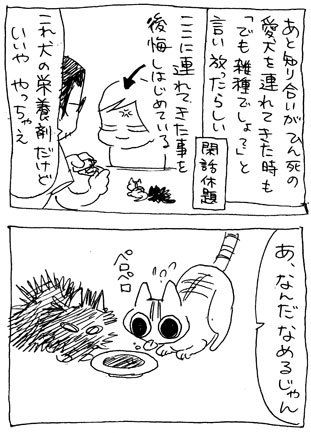 あと知り合いがひん死の
愛犬を連れてきた時も
「でも雑種でしょ？」と
言い放ったらしい
閑話休題
ここに連れてきた事を
後悔しはじめている
これ犬の栄養剤だけど
いいや やっちゃえ
あ、なんだなめるじゃん
ペロペロ